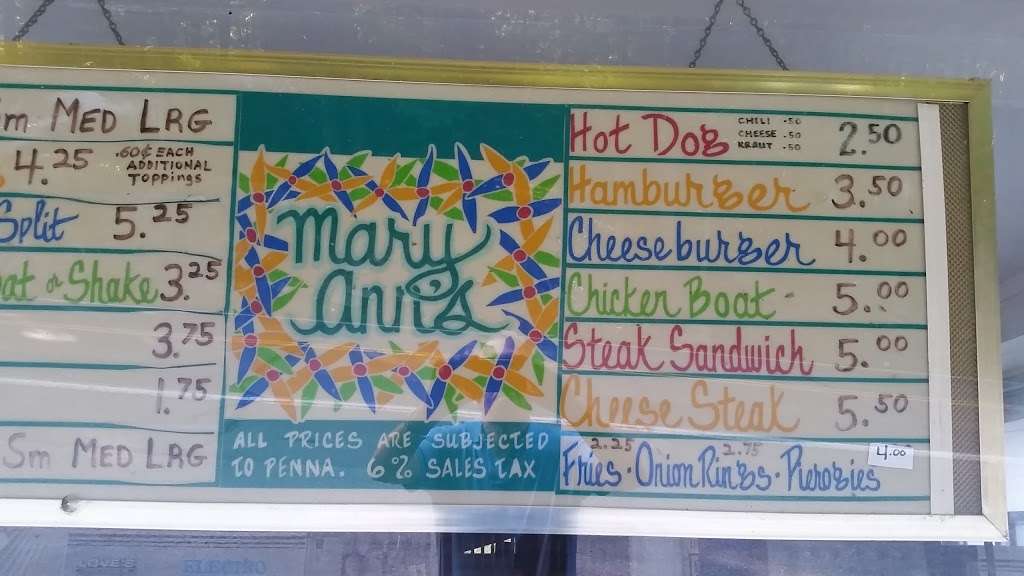 Sm MED LRG
4.25 .60¢ EACH
ADDITIONAL
TOPPINGS
Split 5.25
or Shake 3.25
3.75
1.75
Sm MED LRG
Mary
Ann's
ALL PRICES ARE SUBJECTED
TO PENNA. 6% SALES TAX
Hot Dog CHILI .50 2.50
CHEESE .50
KRAUT .50
Hamburger 3.50
Cheeseburger 4.00
Chicken Boat - 5.00
Steak Sandwich 5.00
Cheese Steak 5.50
2.25 2.75 4.00
Fries · Onion Rings · Pierogies
LOVE'S ELECTRO